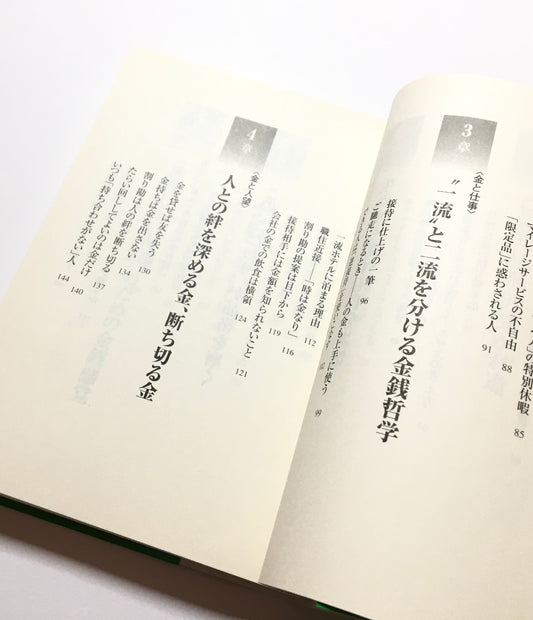 の特別休暇 85
マイレージサービスの不自由 88
「限定品」に惑わされる人 91
3章
〈金と仕事〉
〝一流〟と二流を分ける金銭哲学
接待に仕上げの一筆 96
ご馳走になるとき――人の金も上手に使う 99
一流ホテルに泊まる理由
職住近接――「時は金なり」 112
割り勘の提案は目下から 116
接待相手には金額を知られないこと 119
会社の金での飲食は横領 121
124
4章
〈金と人望〉
人との絆を深める金、断ち切る金
金を貸せば友を失う 130
金持ちは金を出さない 134
割り勘は人の絆を断ち切る 137
たらい回しにしてよいのは金だけ 140
いつも「持ち合わせがない」人 144